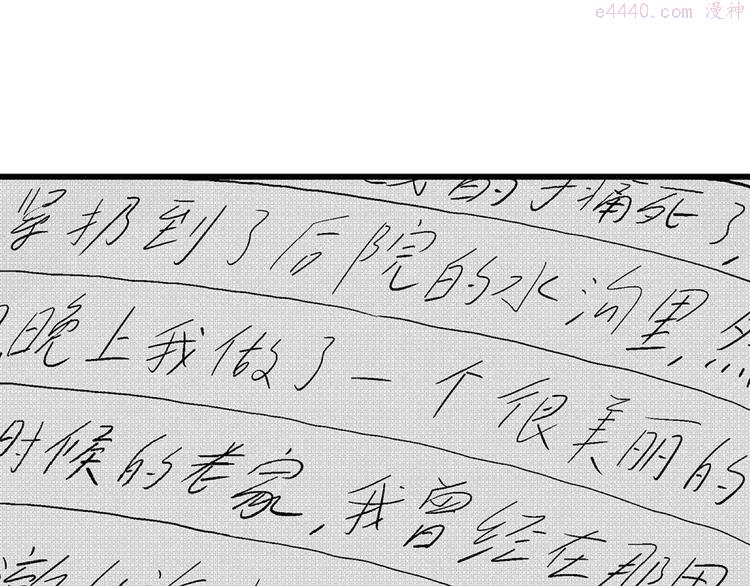 e4440.com 漫神
的手痛死了,
紧扔到了后院的水沟里,然
晚上我做了一个很美丽的
时候的老家,我曾经在那里